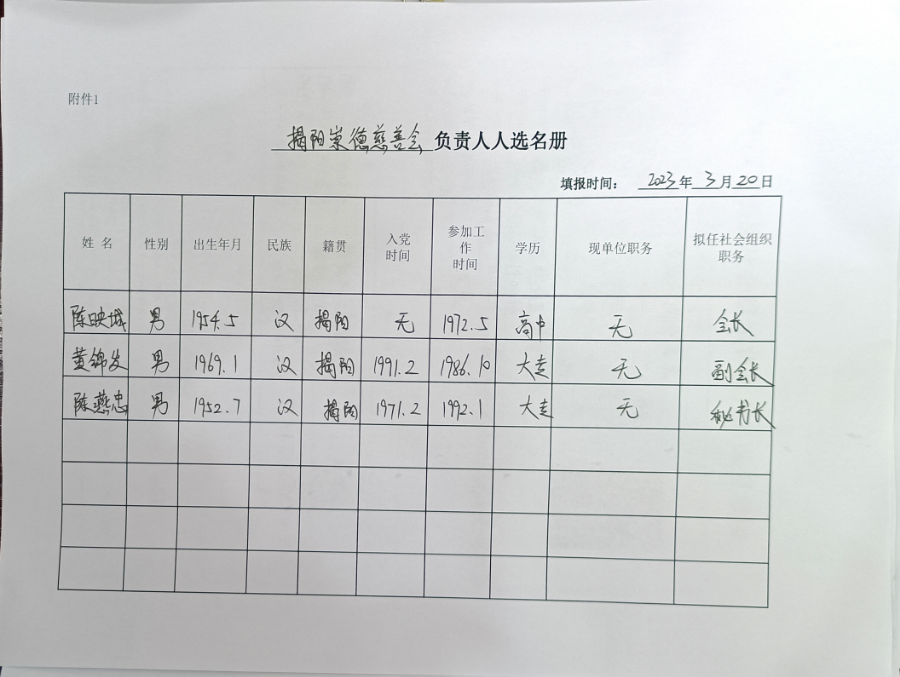 附件1
揭阳崇德慈善会 负责人人选名册
填报时间： 2023 年 3 月 20 日
姓 名 性别 出生年月 民族 籍贯 入党时间 参加工作时间 学历 现单位职务 拟任社会组织职务
陈映城 男 1954.5 汉 揭阳 无 1972.5 高中 无 会长
黄锦发 男 1969.1 汉 揭阳 1991.2 1986.10 大专 无 副会长
陈燕忠 男 1952.7 汉 揭阳 1971.2 1992.1 大专 无 秘书长